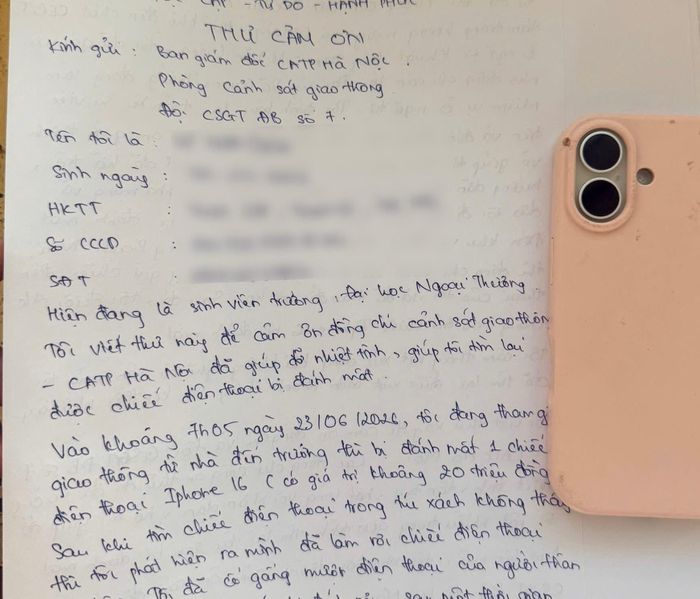 LẬP - TỰ DO - HẠNH PHÚC
THƯ CẢM ƠN
Kính gửi : Ban giám đốc CATP Hà Nội
Phòng Cảnh sát giao thông
Đội CSGT ĐB số 7.
Tên tôi là :
Sinh ngày :
HKTT :
Số CCCD :
SĐT
Hiện đang là sinh viên trường Đại học Ngoại Thương.
Tôi viết thư này để cảm ơn đồng chí cảnh sát giao thôn
- CATP Hà Nội đã giúp đỡ nhiệt tình, giúp tôi tìm lại
được chiếc điện thoại bị đánh mất.
Vào khoảng 7h05 ngày 23/06/2026, tôi đang tham gi
giao thông từ nhà đến trường thì bị đánh mất 1 chiếc
điện thoại Iphone 16 (có giá trị khoảng 20 triệu đồng
Sau khi tìm chiếc điện thoại trong túi xách không thấy
thì tôi phát hiện ra mình đã làm rơi chiếc điện thoại
Tôi đã cố gắng mượn điện thoại của người thân
sau một thời gian